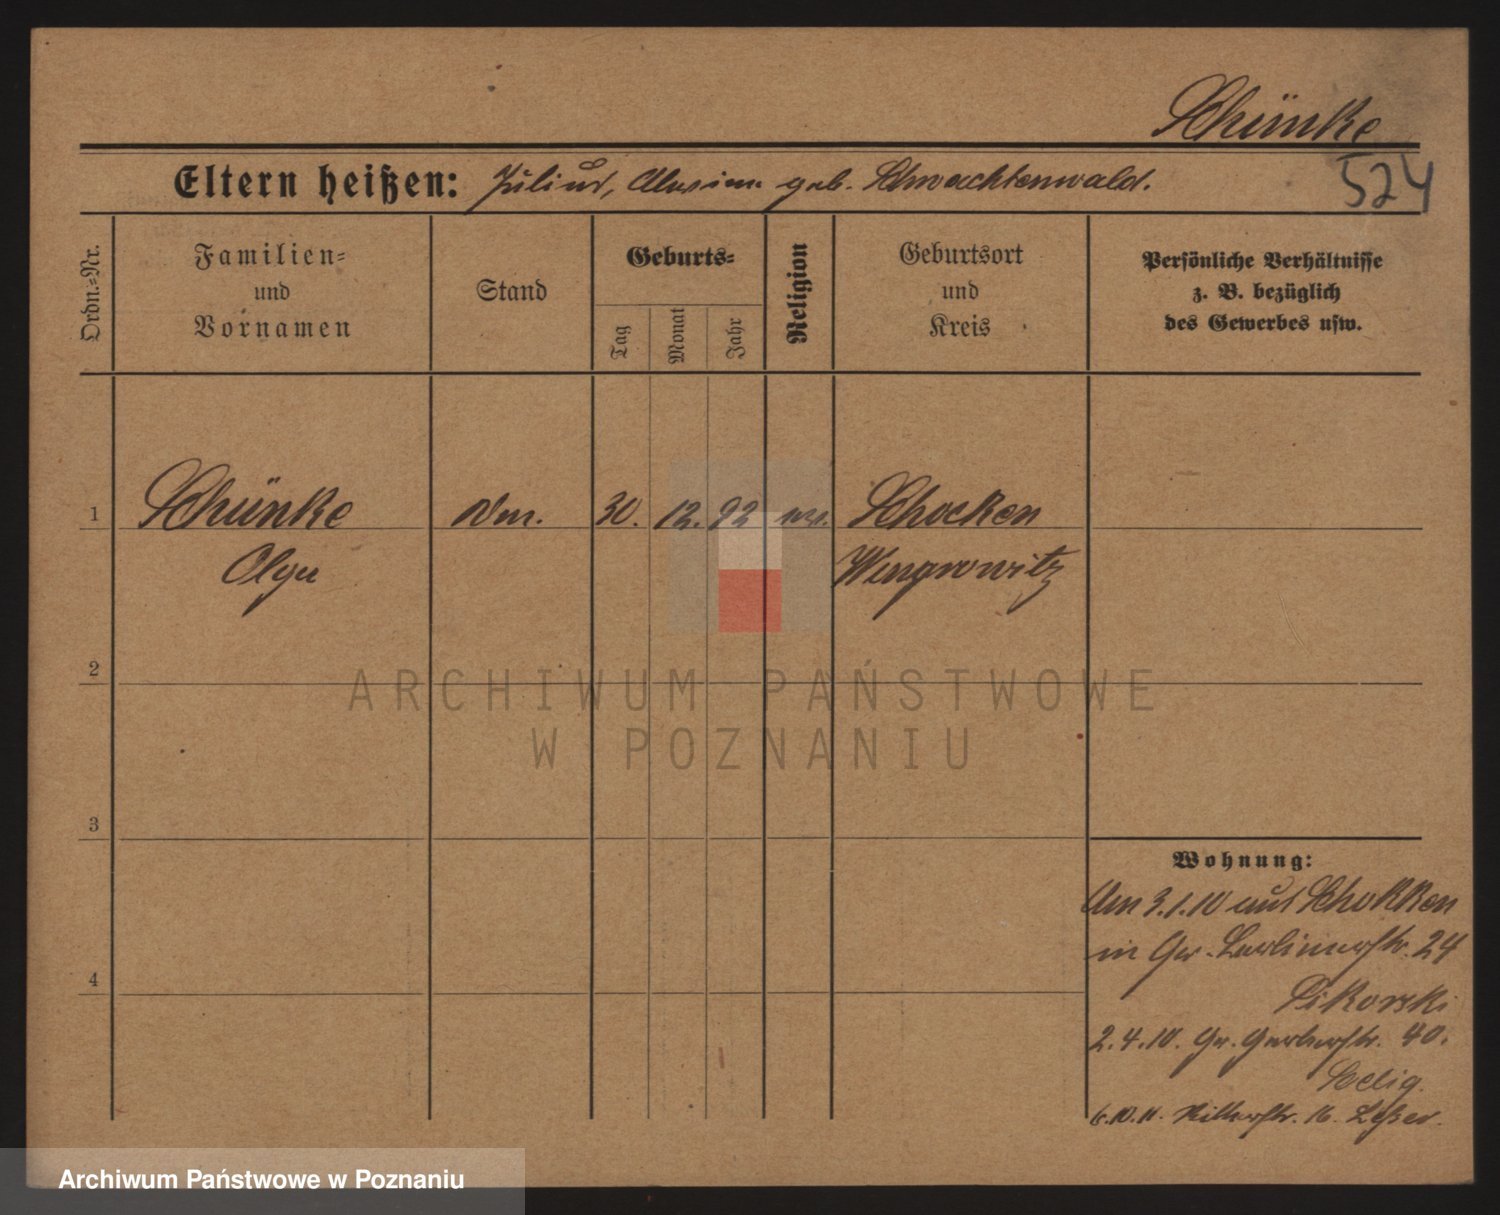 Schünke
524
Eltern heißen: Julius, geb. Schwachtenwald.
Ordn.-Nr.
Familien-
und
Vornamen
Stand
Geburts-
Tag
Monat
Jahr
Religion
Geburtsort
und
Kreis
Persönliche Verhältnisse
z. B. bezüglich
des Gewerbes usw.
1 Schünke 30. 12. 92 Schocken
Olga Wengrowitz
2
ARCHIWUM PAŃSTWOWE
W POZNANIU
3
Wohnung:
Am 3.1.10 aus Schokken
in Gr. Berlinerstr. 24
Sikorski
4
2.4.10. Gr. Gerberstr. 40.
Selig.
6.10.11. Ritterstr. 16.
Archiwum Państwowe w Poznaniu